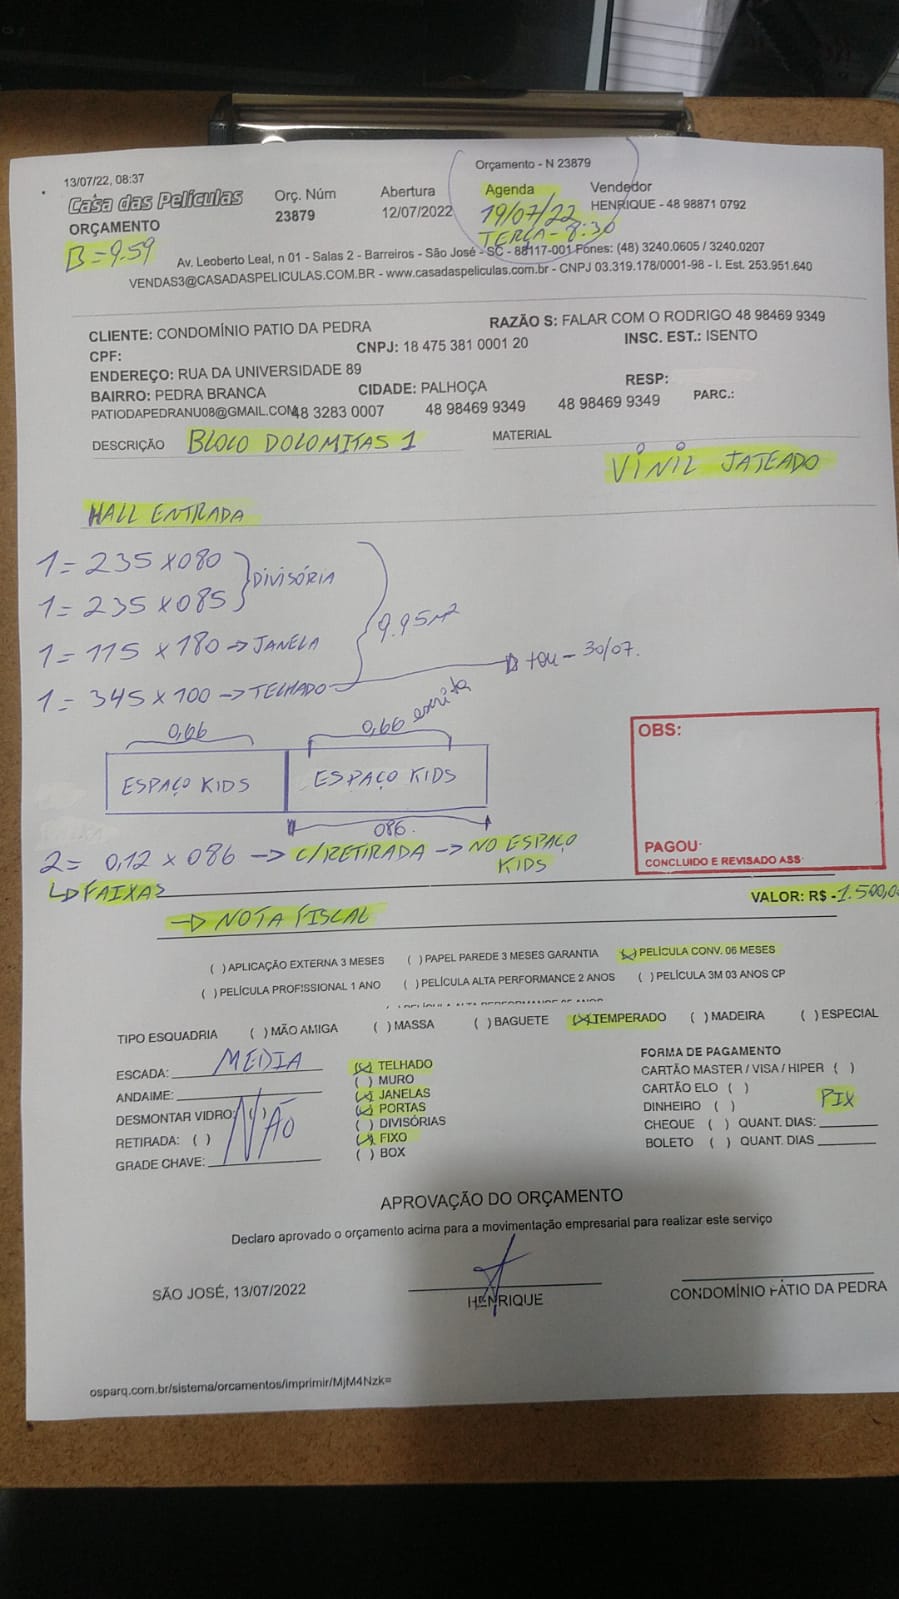 13/07/22, 08:37
Orçamento - N 23879
Casa das Películas
Orç. Núm
Abertura
Agenda
Vendedor
ORÇAMENTO
23879
12/07/2022
19/07/22
HENRIQUE - 48 98871 0792
TERÇA - 8:30
B = 9.59
Av. Leoberto Leal, n 01 - Salas 2 - Barreiros - São José - SC - 88117-001 Fones: (48) 3240.0605 / 3240.0207
VENDAS3@CASADASPELICULAS.COM.BR - www.casadaspeliculas.com.br - CNPJ 03.319.178/0001-98 - I. Est. 253.951.640
CLIENTE: CONDOMÍNIO PATIO DA PEDRA
RAZÃO S: FALAR COM O RODRIGO 48 98469 9349
CPF:
CNPJ: 18 475 381 0001 20
INSC. EST.: ISENTO
ENDEREÇO: RUA DA UNIVERSIDADE 89
BAIRRO: PEDRA BRANCA
CIDADE: PALHOÇA
RESP:
PARC.:
PATIODAPEDRANU08@GMAIL.COM
48 3283 0007
48 98469 9349
48 98469 9349
DESCRIÇÃO BLOCO DOLOMITAS 1
MATERIAL
VINIL JATEADO
HALL ENTRADA
1 = 235 x 080
DIVISÓRIA
1 = 235 x 085
9.95m²
1 = 115 x 180 → JANELA
1 = 345 x 100 → TELHADO
30/07.
0,66
0,66 escrita
ESPAÇO KIDS
ESPAÇO KIDS
086.
2 = 0,12 x 086 → C/RETIRADA → NO ESPAÇO KIDS
FAIXAS
→ NOTA FISCAL
OBS:
PAGOU:
CONCLUIDO E REVISADO ASS:
VALOR: R$ - 1.500,0
( ) APLICAÇÃO EXTERNA 3 MESES ( ) PAPEL PAREDE 3 MESES GARANTIA (x) PELÍCULA CONV. 06 MESES
( ) PELÍCULA PROFISSIONAL 1 ANO ( ) PELÍCULA ALTA PERFORMANCE 2 ANOS ( ) PELÍCULA 3M 03 ANOS CP
TIPO ESQUADRIA ( ) MÃO AMIGA ( ) MASSA ( ) BAGUETE (x) TEMPERADO ( ) MADEIRA ( ) ESPECIAL
ESCADA: MEDIA
ANDAIME:
DESMONTAR VIDRO: ( )
NÃO
RETIRADA: ( )
GRADE CHAVE:
(x) TELHADO
( ) MURO
(x) JANELAS
(x) PORTAS
( ) DIVISÓRIAS
(x) FIXO
( ) BOX
FORMA DE PAGAMENTO
CARTÃO MASTER / VISA / HIPER ( )
CARTÃO ELO ( )
DINHEIRO ( )
PIX
CHEQUE ( ) QUANT. DIAS:
BOLETO ( ) QUANT. DIAS
APROVAÇÃO DO ORÇAMENTO
Declaro aprovado o orçamento acima para a movimentação empresarial para realizar este serviço
SÃO JOSÉ, 13/07/2022
HENRIQUE
CONDOMÍNIO PÁTIO DA PEDRA
osparq.com.br/sistema/orcamentos/imprimir/MjM4Nzk=